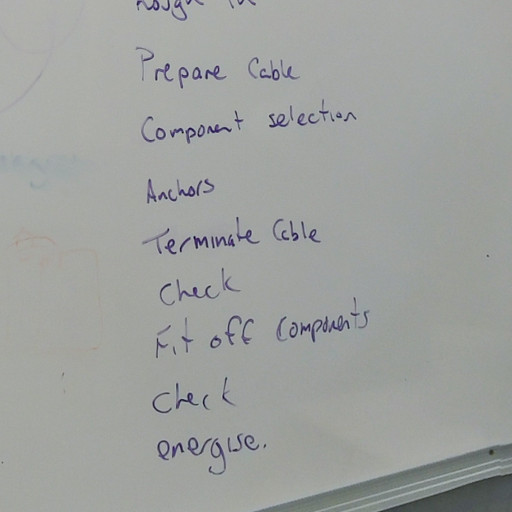 Rough in
Prepare Cable
Component selection
Anchors
Terminate Cable
Check
Fit off Components
Check
energise.